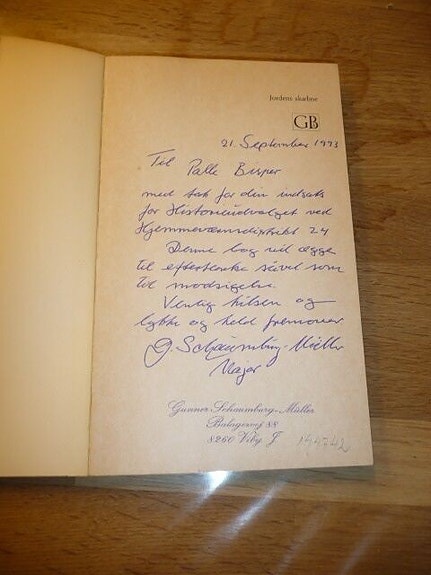 Jordens skæbne
GB
21. September 1993
Til Palle Bisper
med tak for din indsats
for Historieudvalget ved
Hjemmeværnsdistrikt 24
Denne bog vil ægge
til eftertanke såvel som
til modsigelse
Venlig hilsen og
lykke og held fremover
G. Schaumburg-Müller
Major
Gunner Schaumburg-Müller
Bøløgervej 88
8260 Viby J.